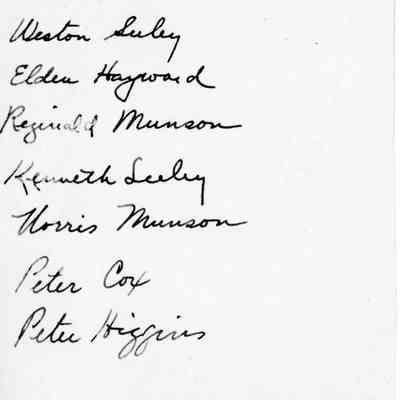 Weston Seeley
Elden Hayward
Reginald Munson
Kenneth Seeley
Norris Munson
Peter Cox
Peter Higgins